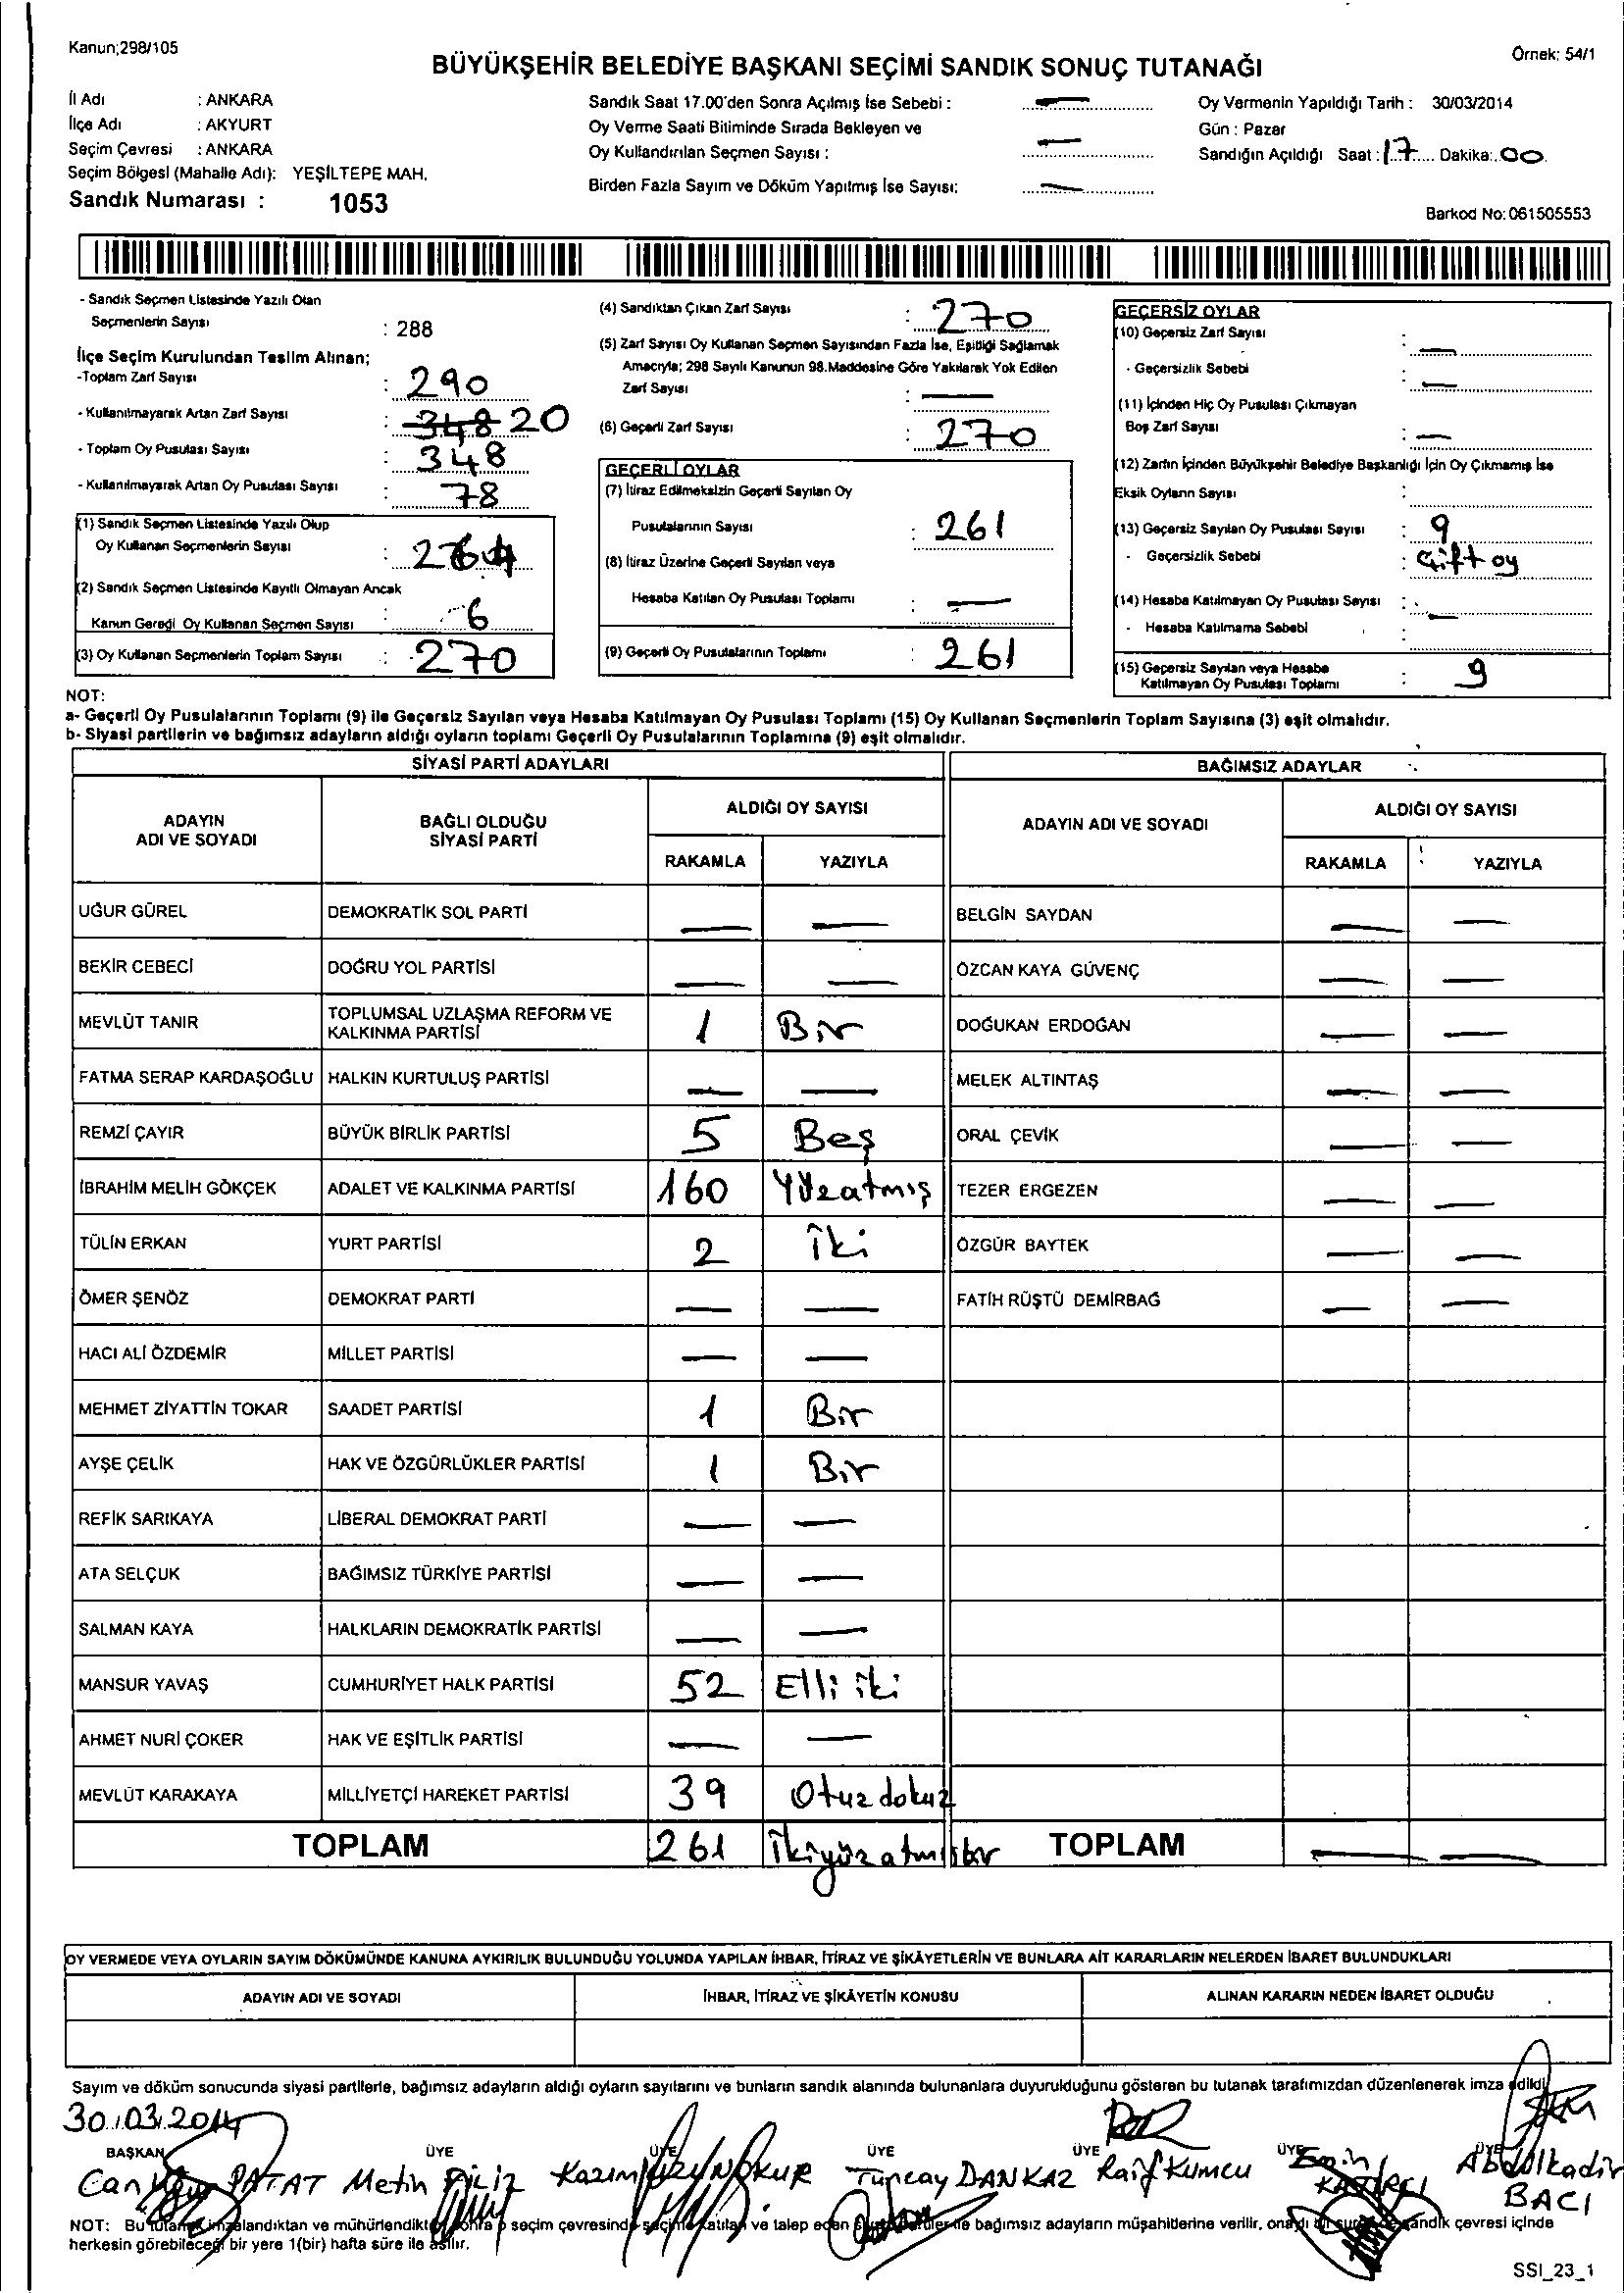 Kanun;298/105
Örnek: 54/1
BÜYÜKŞEHİR BELEDİYE BAŞKANI SEÇİMİ SANDIK SONUÇ TUTANAĞI
İl Adı : ANKARA
İlçe Adı : AKYURT
Seçim Çevresi : ANKARA
Seçim Bölgesi (Mahalle Adı): YEŞİLTEPE MAH.
Sandık Numarası : 1053
Sandık Saat 17.00'den Sonra Açılmış İse Sebebi : —
Oy Verme Saati Bitiminde Sırada Bekleyen ve
Oy Kullandırılan Seçmen Sayısı : —
Birden Fazla Sayım ve Döküm Yapılmış İse Sayısı: —
Oy Vermenin Yapıldığı Tarih : 30/03/2014
Gün : Pazar
Sandığın Açıldığı Saat : 17 Dakika: 00
Barkod No: 061505553
- Sandık Seçmen Listesinde Yazılı Olan
Seçmenlerin Sayısı : 288
İlçe Seçim Kurulundan Teslim Alınan;
-Toplam Zarf Sayısı : 290
- Kullanılmayarak Artan Zarf Sayısı : 348 20
- Toplam Oy Pusulası Sayısı : 348
- Kullanılmayarak Artan Oy Pusulası Sayısı : 78
(1) Sandık Seçmen Listesinde Yazılı Olup
Oy Kullanan Seçmenlerin Sayısı : 264
(2) Sandık Seçmen Listesinde Kayıtlı Olmayan Ancak
Kanun Gereği Oy Kullanan Seçmen Sayısı : 6
(3) Oy Kullanan Seçmenlerin Toplam Sayısı : 270
(4) Sandıktan Çıkan Zarf Sayısı : 270
(5) Zarf Sayısı Oy Kullanan Seçmen Sayısından Fazla İse, Eşitliği Sağlamak
Amacıyla; 298 Sayılı Kanunun 98.Maddesine Göre Yakılarak Yok Edilen
Zarf Sayısı : —
(6) Geçerli Zarf Sayısı : 270
GEÇERLİ OYLAR
(7) İtiraz Edilmeksizin Geçerli Sayılan Oy
Pusulalarının Sayısı : 261
(8) İtiraz Üzerine Geçerli Sayılan veya
Hesaba Katılan Oy Pusulası Toplamı : —
(9) Geçerli Oy Pusulalarının Toplamı : 261
GEÇERSİZ OYLAR
(10) Geçersiz Zarf Sayısı : —
- Geçersizlik Sebebi : —
(11) İçinden Hiç Oy Pusulası Çıkmayan
Boş Zarf Sayısı : —
(12) Zarfın İçinden Büyükşehir Belediye Başkanlığı İçin Oy Çıkmamış İse
Eksik Oyların Sayısı :
(13) Geçersiz Sayılan Oy Pusulası Sayısı : 9
- Geçersizlik Sebebi : Çift oy
(14) Hesaba Katılmayan Oy Pusulası Sayısı : —
- Hesaba Katılmama Sebebi :
(15) Geçersiz Sayılan veya Hesaba
Katılmayan Oy Pusulası Toplamı : 9
NOT:
a- Geçerli Oy Pusulalarının Toplamı (9) ile Geçersiz Sayılan veya Hesaba Katılmayan Oy Pusulası Toplamı (15) Oy Kullanan Seçmenlerin Toplam Sayısına (3) eşit olmalıdır.
b- Siyasi partilerin ve bağımsız adayların aldığı oyların toplamı Geçerli Oy Pusulalarının Toplamına (9) eşit olmalıdır.
SİYASİ PARTİ ADAYLARI
BAĞIMSIZ ADAYLAR
ADAYIN ADI VE SOYADI
BAĞLI OLDUĞU SİYASİ PARTİ
ALDIĞI OY SAYISI
RAKAMLA YAZIYLA
ADAYIN ADI VE SOYADI
ALDIĞI OY SAYISI
RAKAMLA YAZIYLA
UĞUR GÜREL DEMOKRATİK SOL PARTİ — — BELGİN SAYDAN — —
BEKİR CEBECİ DOĞRU YOL PARTİSİ — — ÖZCAN KAYA GÜVENÇ — —
MEVLÜT TANIR TOPLUMSAL UZLAŞMA REFORM VE KALKINMA PARTİSİ 1 Bir DOĞUKAN ERDOĞAN — —
FATMA SERAP KARDAŞOĞLU HALKIN KURTULUŞ PARTİSİ — — MELEK ALTINTAŞ — —
REMZİ ÇAYIR BÜYÜK BİRLİK PARTİSİ 5 Beş ORAL ÇEVİK — —
İBRAHİM MELİH GÖKÇEK ADALET VE KALKINMA PARTİSİ 160 Yüzatmış TEZER ERGEZEN — —
TÜLİN ERKAN YURT PARTİSİ 2 İki ÖZGÜR BAYTEK — —
ÖMER ŞENÖZ DEMOKRAT PARTİ — — FATİH RÜŞTÜ DEMİRBAĞ — —
HACI ALİ ÖZDEMİR MİLLET PARTİSİ — —
MEHMET ZİYATTİN TOKAR SAADET PARTİSİ 1 Bir
AYŞE ÇELİK HAK VE ÖZGÜRLÜKLER PARTİSİ 1 Bir
REFİK SARIKAYA LİBERAL DEMOKRAT PARTİ — —
ATA SELÇUK BAĞIMSIZ TÜRKİYE PARTİSİ — —
SALMAN KAYA HALKLARIN DEMOKRATİK PARTİSİ — —
MANSUR YAVAŞ CUMHURİYET HALK PARTİSİ 52 Elli iki
AHMET NURİ ÇOKER HAK VE EŞİTLİK PARTİSİ — —
MEVLÜT KARAKAYA MİLLİYETÇİ HAREKET PARTİSİ 39 Otuz dokuz
TOPLAM 261 İkiyüzatmışbir TOPLAM — —
OY VERMEDE VEYA OYLARIN SAYIM DÖKÜMÜNDE KANUNA AYKIRILIK BULUNDUĞU YOLUNDA YAPILAN İHBAR, İTİRAZ VE ŞİKÂYETLERİN VE BUNLARA AİT KARARLARIN NELERDEN İBARET BULUNDUKLARI
ADAYIN ADI VE SOYADI İHBAR, İTİRAZ VE ŞİKÂYETİN KONUSU ALINAN KARARIN NEDEN İBARET OLDUĞU
Sayım ve döküm sonucunda siyasi partilerle, bağımsız adayların aldığı oyların sayılarını ve bunların sandık alanında bulunanlara duyurulduğunu gösteren bu tutanak tarafımızdan düzenlenerek imza edildi
30.03.2014
BAŞKAN ÜYE ÜYE ÜYE ÜYE ÜYE ÜYE
PATAT Metin Kazım Tuncay DANKAZ Raif Kumcu Emin Abdulkadir
BACI
NOT: Bu tutanak imzalandıktan ve mühürlendikten sonra seçim çevresinde seçime katılan ve talep eden siyasi partiler ile bağımsız adayların müşahitlerine verilir, onaylı bir sureti de sandık çevresi içinde
herkesin görebileceği bir yere 1(bir) hafta süre ile asılır.
SSI_23_1